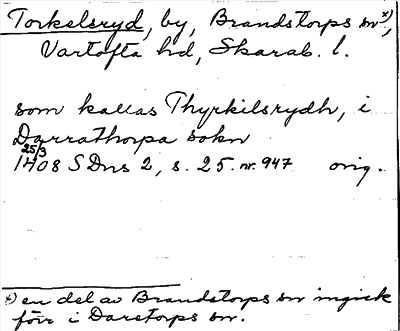 Torkelsryd, by, Brandstorps sn x),
Vartofta hd, Skarab. l.
som kallas Thyrkilsrydh, i
Darrathorpa sokn
25/3
1408 SDns 2, s. 25. nr. 947 orig.
x) en del av Brandstorps sn ingick
förr i Daretorps sn.